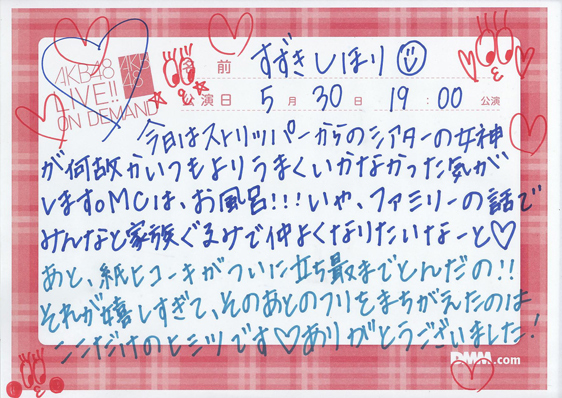 AKB48
LIVE!!
ON DEMAND
AKB
48
名前 すずきしほり
公演日 5月30日 19:00 公演
今日はストリッパーからのシアターの女神
が何故かいつもよりうまくいかなかった気が
します。MCは、お風呂!!!いや、ファミリーの話で
みんなと家族ぐるみで仲よくなりたいなーと♡
あと、紙ヒコーキがついに立ち最までとんだの!!
それが嬉しすぎて、そのあとのフリをまちがえたのは
ここだけのヒミツです♡ありがとうございました!
DMM.com